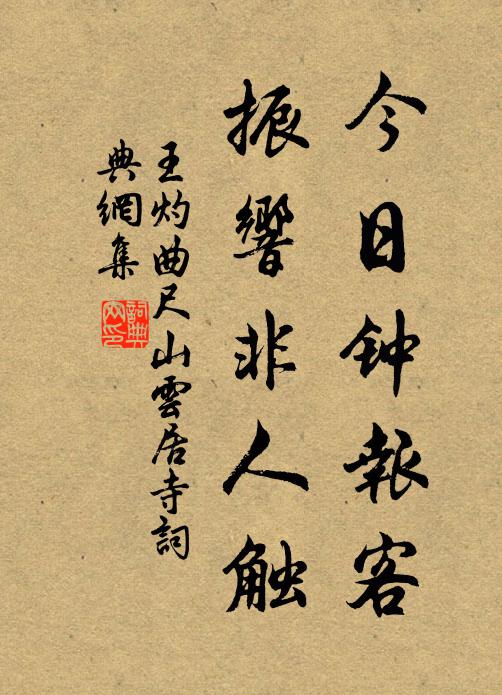 今日钟報客
振響非人触
王灼曲尺山雲居寺詞
典網集
詞典
网印